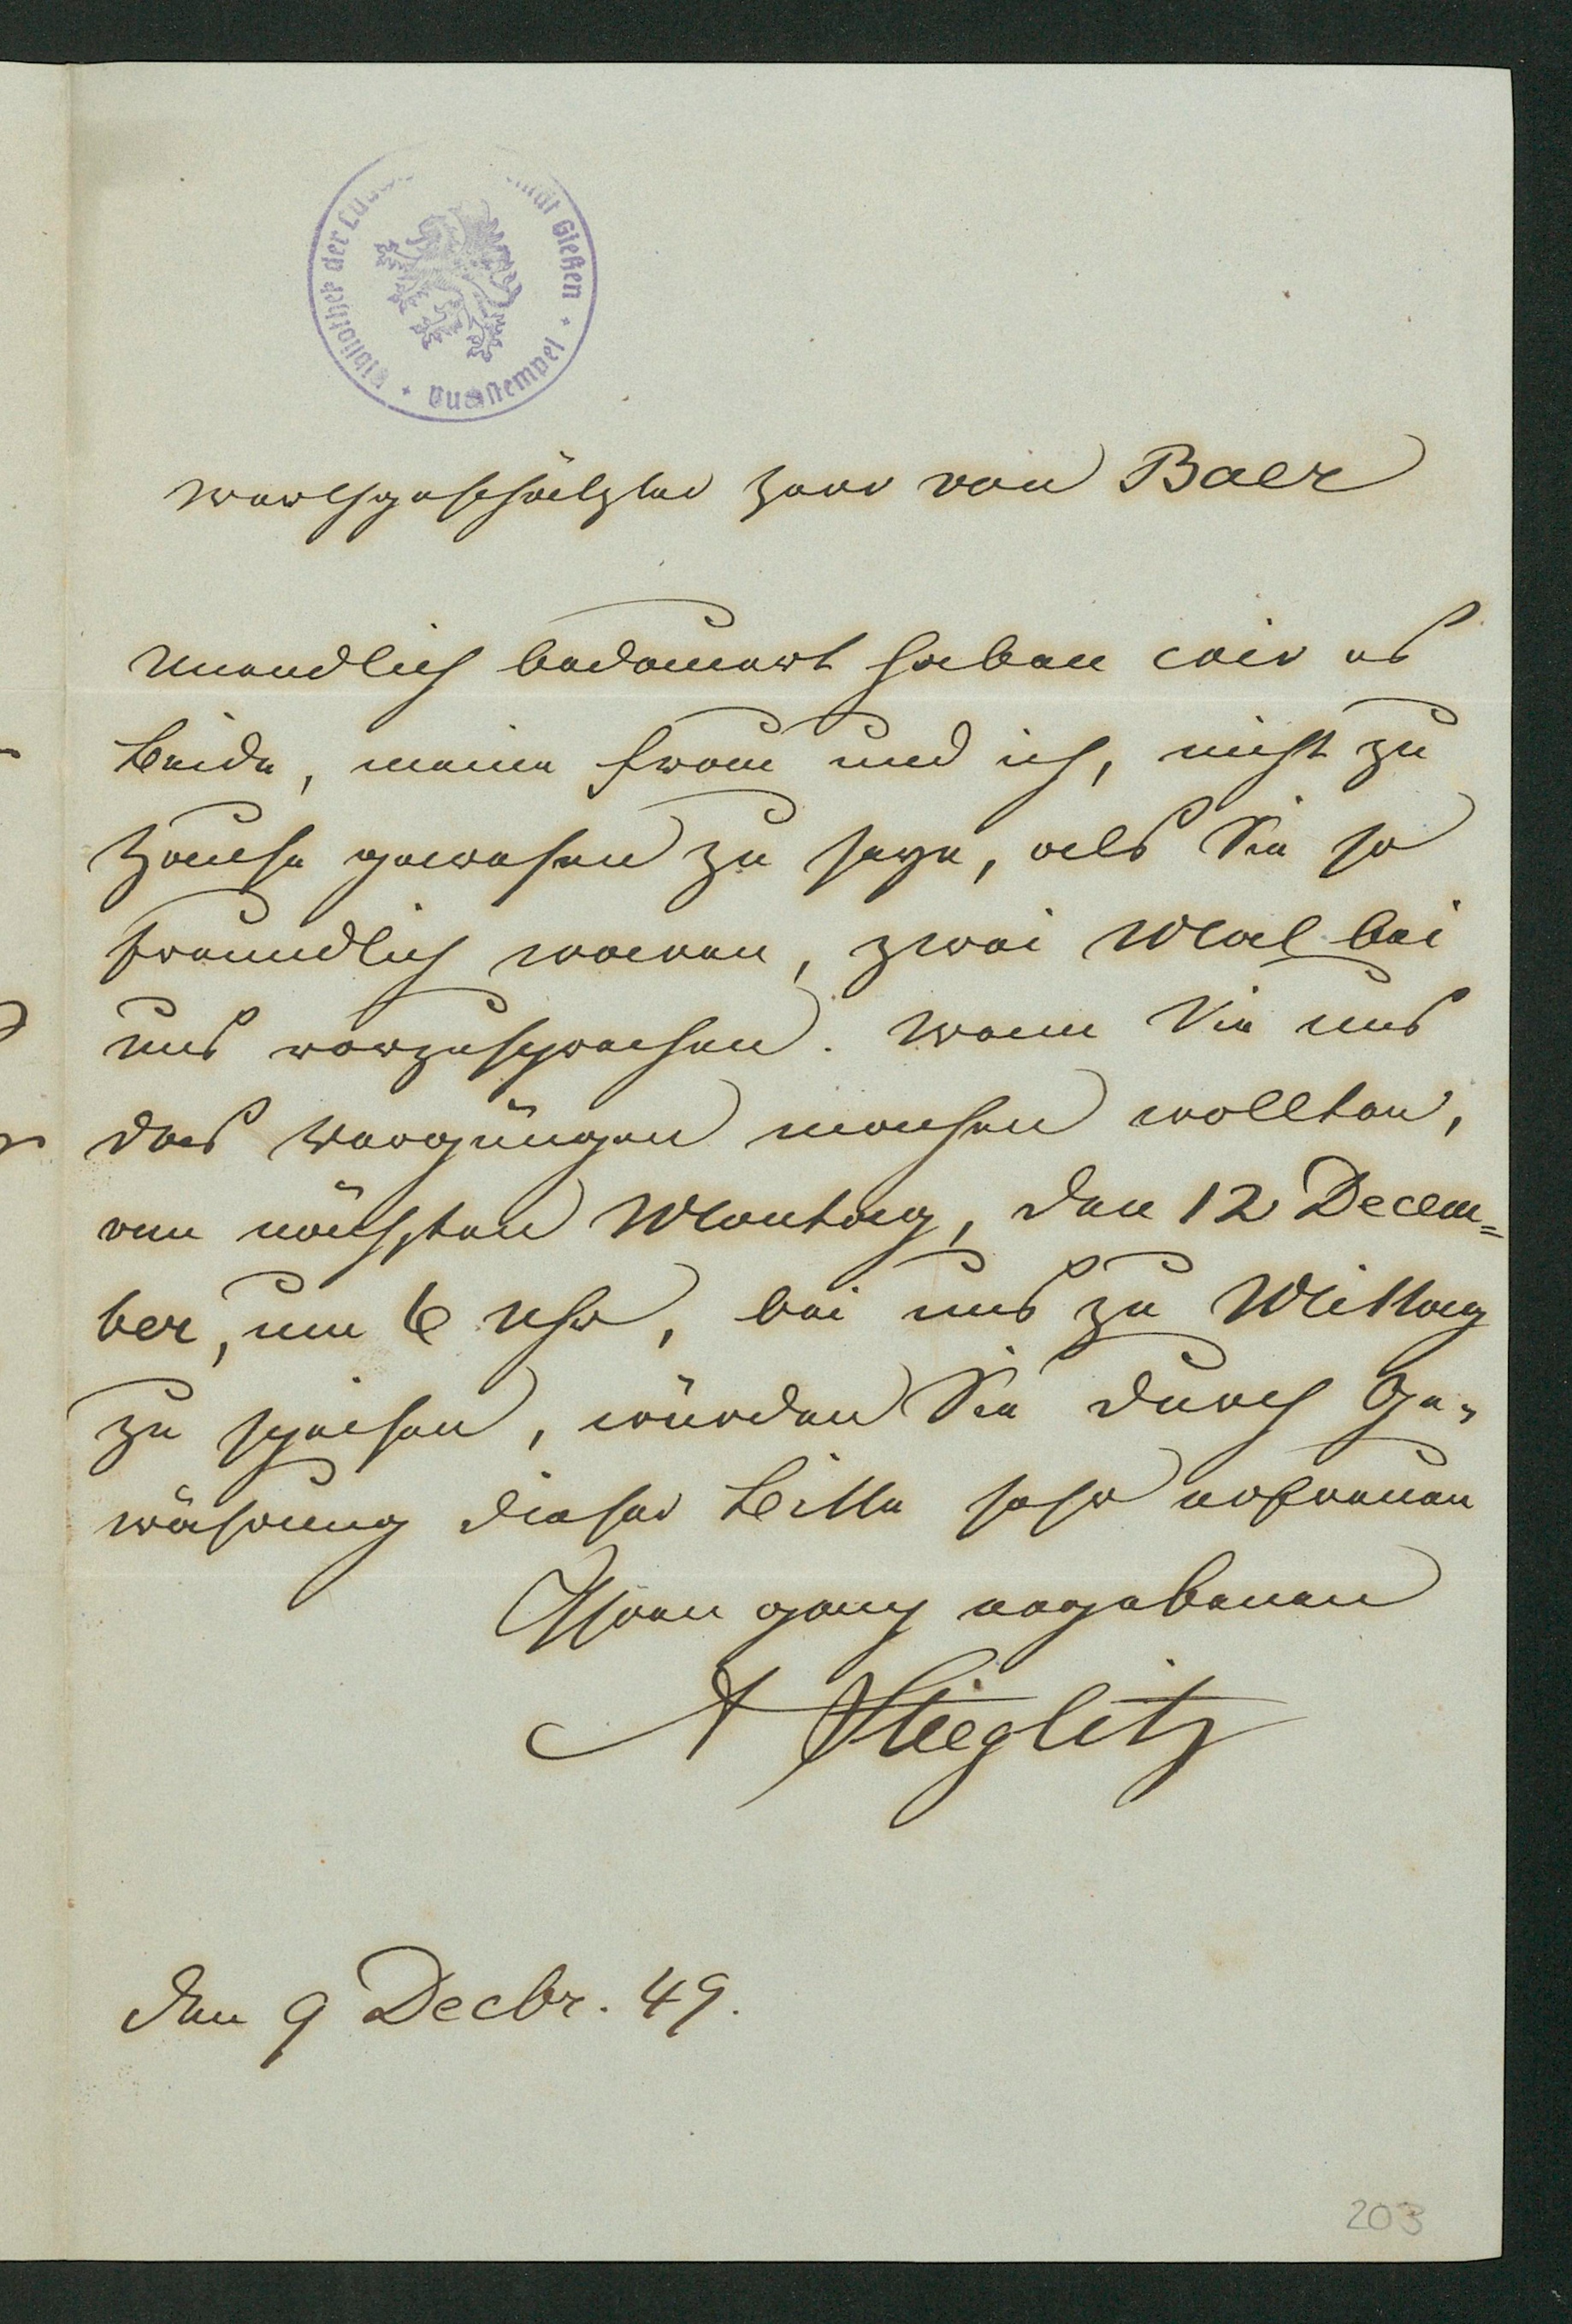 Bibliothek der Lud ität Gießen * Buchstempel *
Werthgeschätzter Herr von Baer
Unendlich bedauert haben wir es
Beide, meine Frau und ich, nicht zu
Hause gewesen zu seyn, als Sie so
freundlich waren, zwei Mal bei
uns vorzusprechen. Wenn Sie uns
das Vergnügen machen wollten,
am nächsten Montag, den 12 Decem=
ber, um 6 Uhr, bei uns zu Mittag
zu speisen, würden Sie durch Ge-
währung dieser Bitte sehr erfreuen
Ihren ganz ergebenen
A Stieglitz
den 9 Decbr. 49.
203